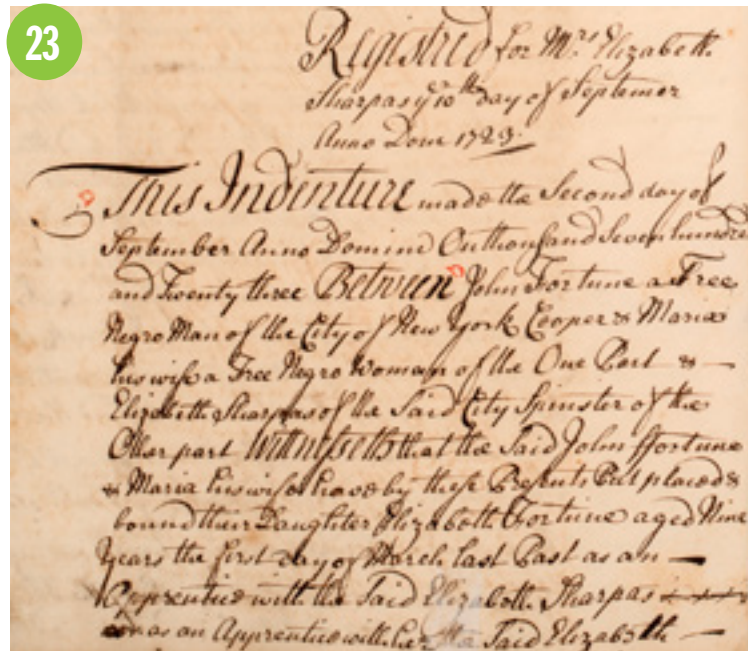 23
Registred for Mrs. Elizabeth
Sharpas ye 10th day of Septemer
Anno Dom 1723.
This Indenture made the Second day of
September Anno Domini Onthousand Seven hundred
and Twenty three Between John Fortune a Free
Negro Man of the City of New York Cooper & Maria
his wife a Free Negro Woman of the One Part & —
Elizabeth Sharpas of the Said City Spinster of the
Other part Witnesseth that the Said John ffortune
& Maria his wife have by these Presents Put placed &
bound their Daughter Elizabeth Fortune aged Nine
Years the first day of March last Past as an —
Apprentice with the Said Elizabeth Sharpas
as an Apprentice with her the Said Elizabeth —